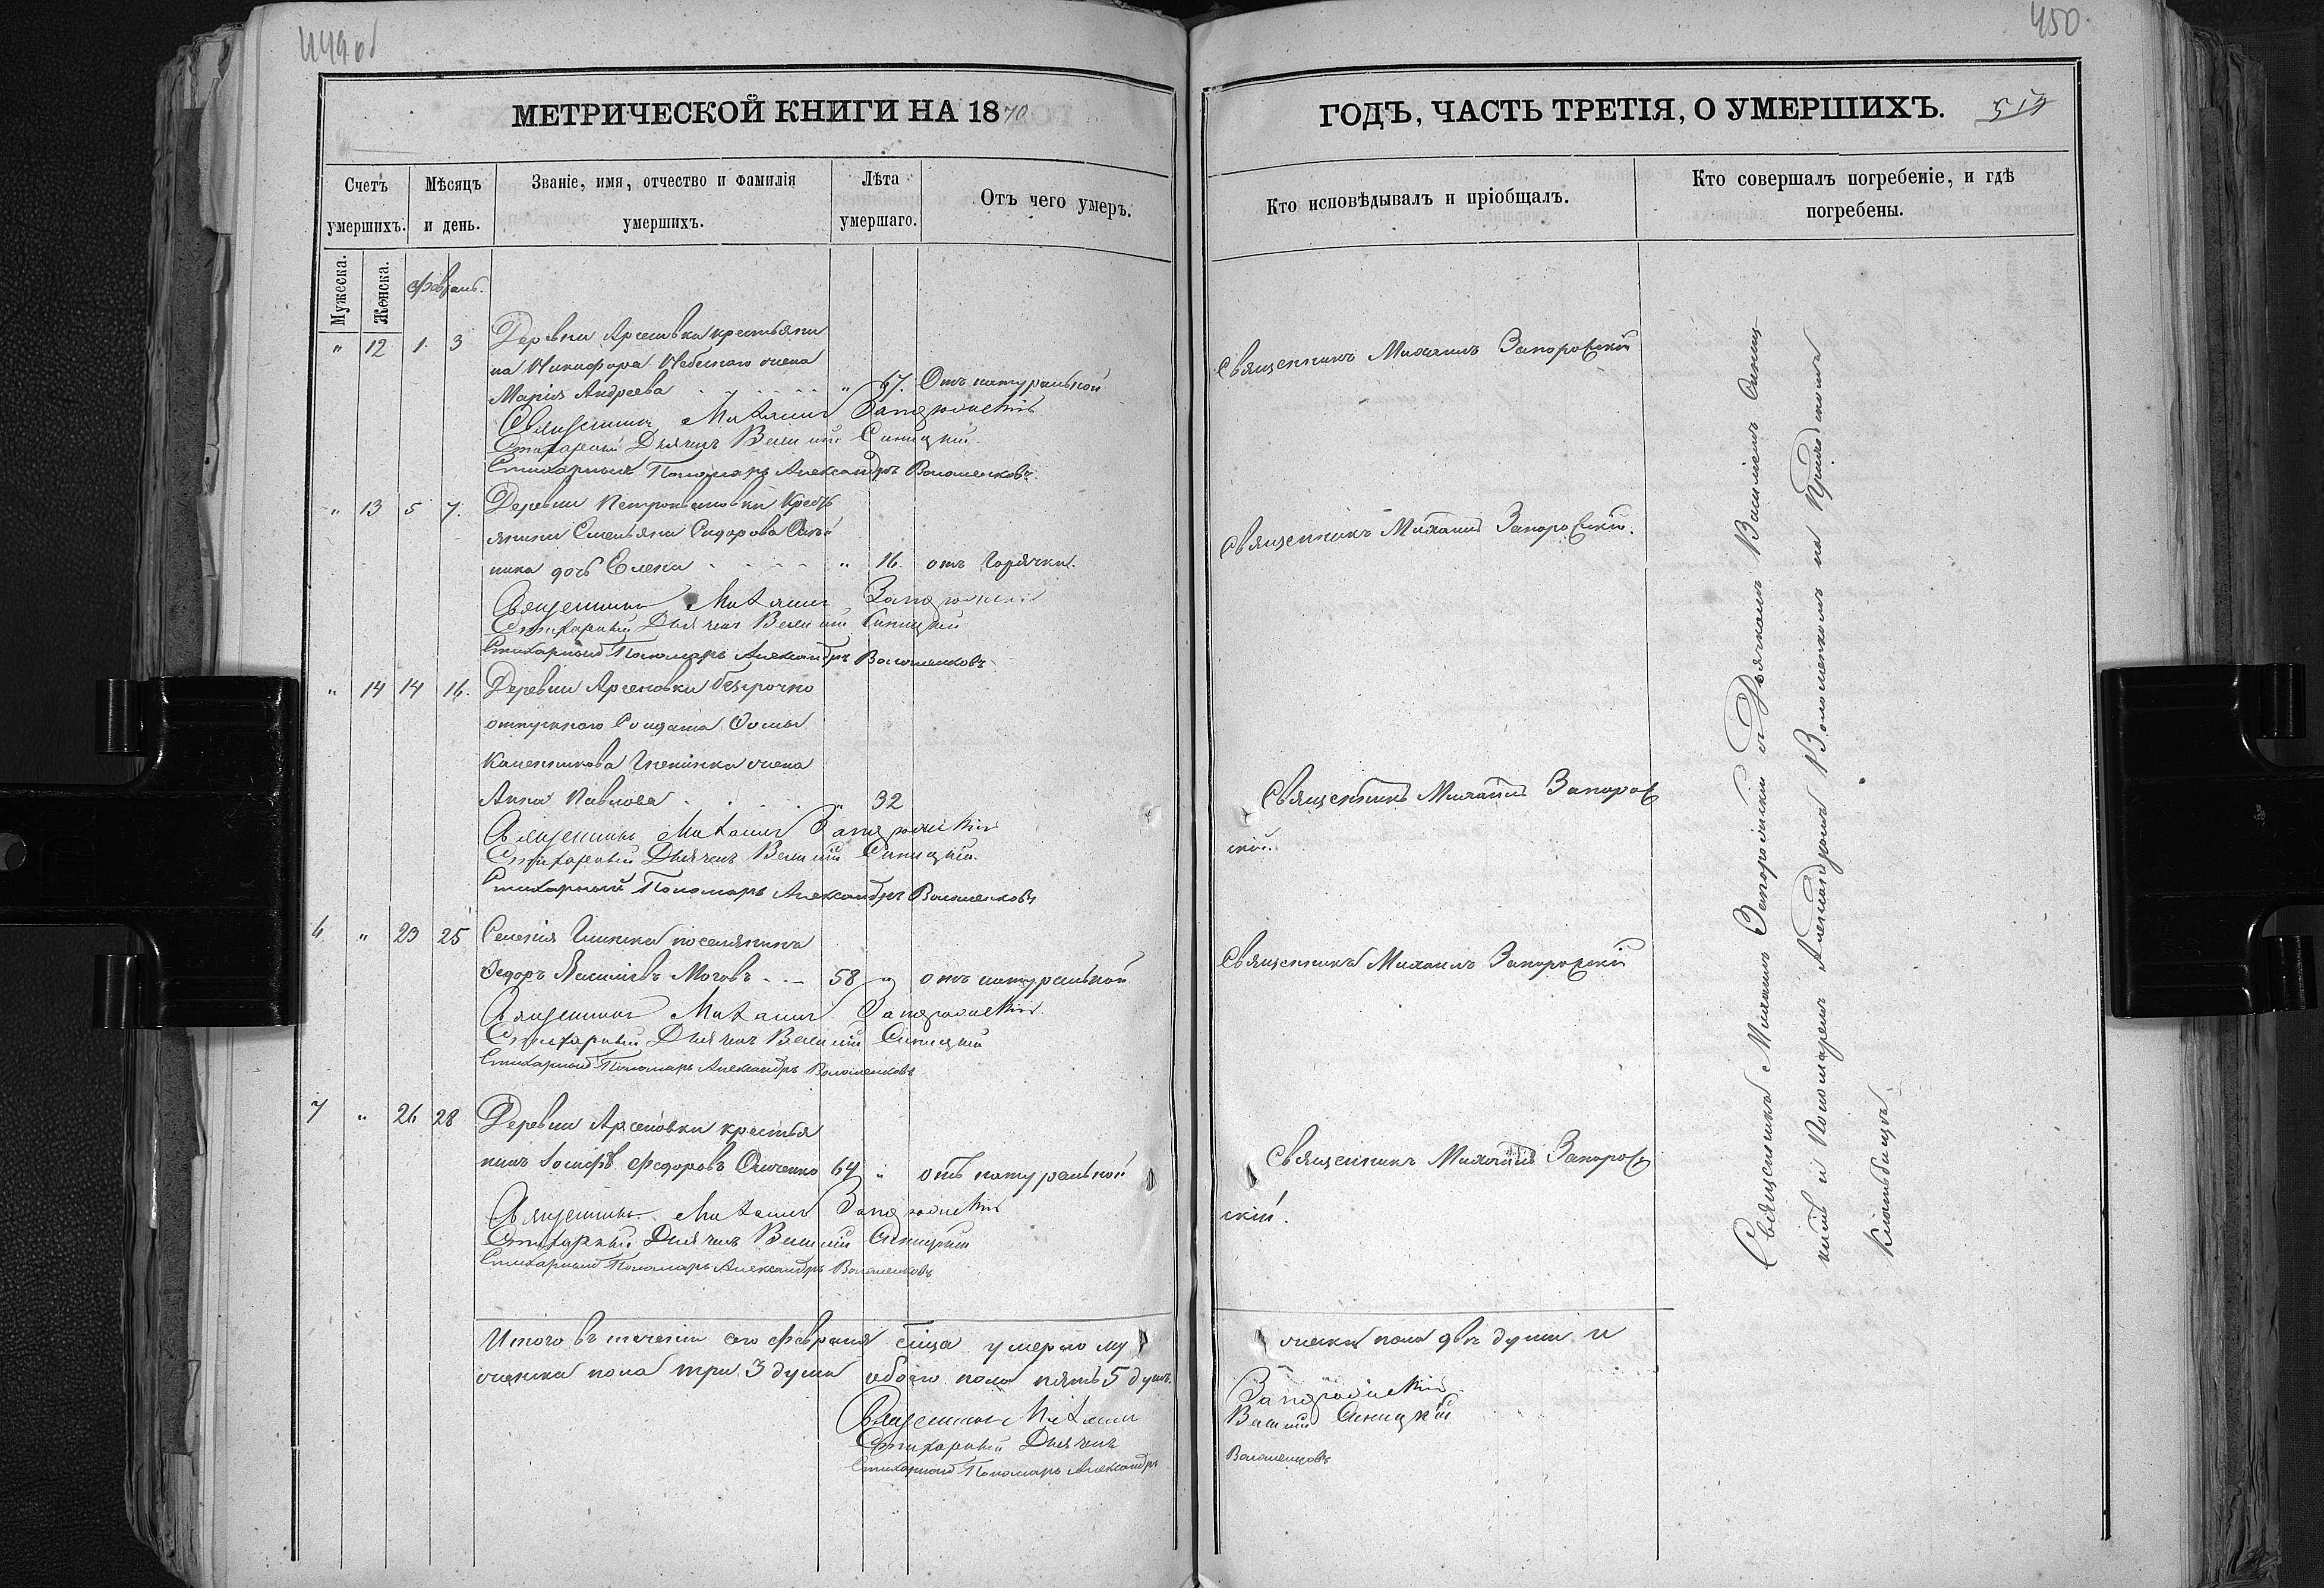 449 об
МЕТРИЧЕСКОЙ КНИГИ НА 1870
Счетъ умершихъ.
Мѣсяцъ и день.
Званіе, имя, отчество и фамилія умершихъ.
Лѣта умершаго.
Отъ чего умеръ.
Мужеска.
Женска.
Февраль.
" 12 1 3 Деревни Арсеновки крестьяни
на Никифора Небесного жена
Марія Андреева " 67. Отъ натуральной
Священникъ Михаилъ Запорожскій
Стихарный Дьячекъ Василій Синицкій
Стихарный Пономарь Александръ Волошенковъ
" 13 5 7. Деревни Кресть
янина Емельяна Сидорова
ника дочь Елена " 16. отъ горячки.
Священникъ Михаилъ Запорожскій
Стихарный Дьячекъ Василій Синицкій
Стихарный Пономарь Александръ Волошенковъ
" 14 14 16. Деревни Арсеновки безсрочно
отпускного Солдата Фомы
жена
Анна Павлова " 32
Священникъ Михаилъ Запорожскій
Стихарный Дьячекъ Василій Синицкій
Стихарный Пономарь Александръ Волошенковъ
6 " 23 25 Селенія поселянинъ
Федоръ Васильевъ 58 " отъ натуральной
Священникъ Михаилъ Запорожскій
Стихарный Дьячекъ Василій Синицкій
Стихарный Пономарь Александръ Волошенковъ
7 " 26 28 Деревни Арсеновки крестья
нинъ Іосифъ Федоровъ 64 " отъ натуральной
Священникъ Михаилъ Запорожскій
Стихарный Дьячекъ Василій Синицкій
Стихарный Пономарь Александръ Волошенковъ
Итого въ теченіи сего Февраля умерло му
женска пола три 3 души обоего пола пять 5 душъ.
Священникъ Михаилъ
Стихарный Дьячекъ
Стихарный Пономарь Александръ
450
ГОДЪ, ЧАСТЬ ТРЕТІЯ, О УМЕРШИХЪ.
Кто исповѣдывалъ и пріобщалъ.
Кто совершалъ погребеніе, и гдѣ
погребены.
Священникъ Михаилъ Запорожскій
Священникъ Михаилъ Запорожскій.
Священникъ Михаилъ Запорож
скій.
Священникъ Михаилъ Запорожскій
Священникъ Михаилъ Запорож
скій.
жеска пола двѣ души и
Запорожскій
Василій Синицкій
Волошенковъ
Священникъ Михаилъ Запорожскій и Дьякомъ Василіемъ Синиц
кимъ и Пономаремъ Александромъ Волошенкомъ на Приходскомъ
Кладбищѣ